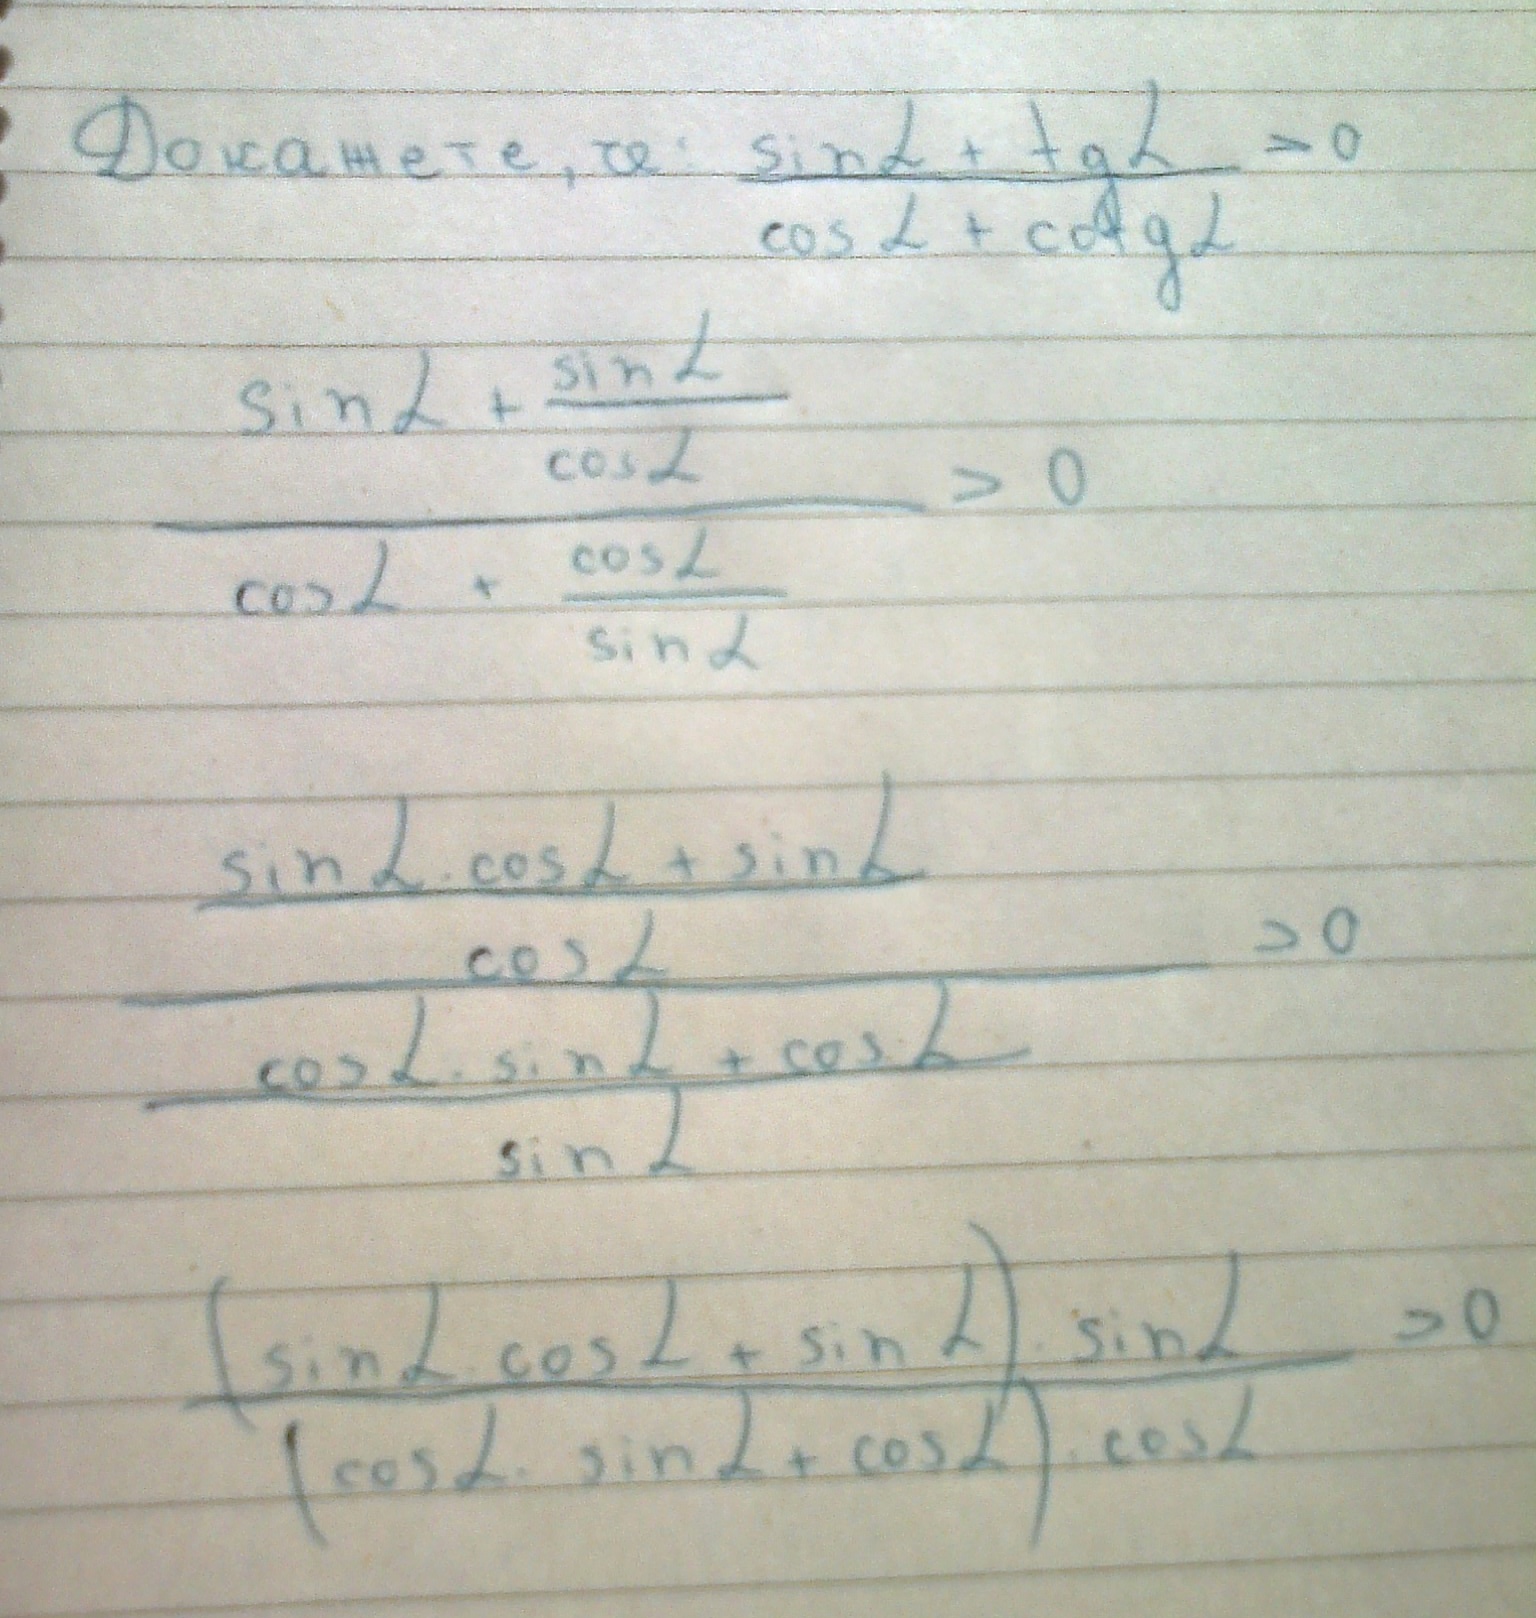 Докажете, че: (sin α + tg α) / (cos α + cotg α) > 0
(sin α + sin α / cos α) / (cos α + cos α / sin α) > 0
((sin α . cos α + sin α) / cos α) / ((cos α . sin α + cos α) / sin α) > 0
((sin α . cos α + sin α) . sin α) / ((cos α . sin α + cos α) . cos α) > 0